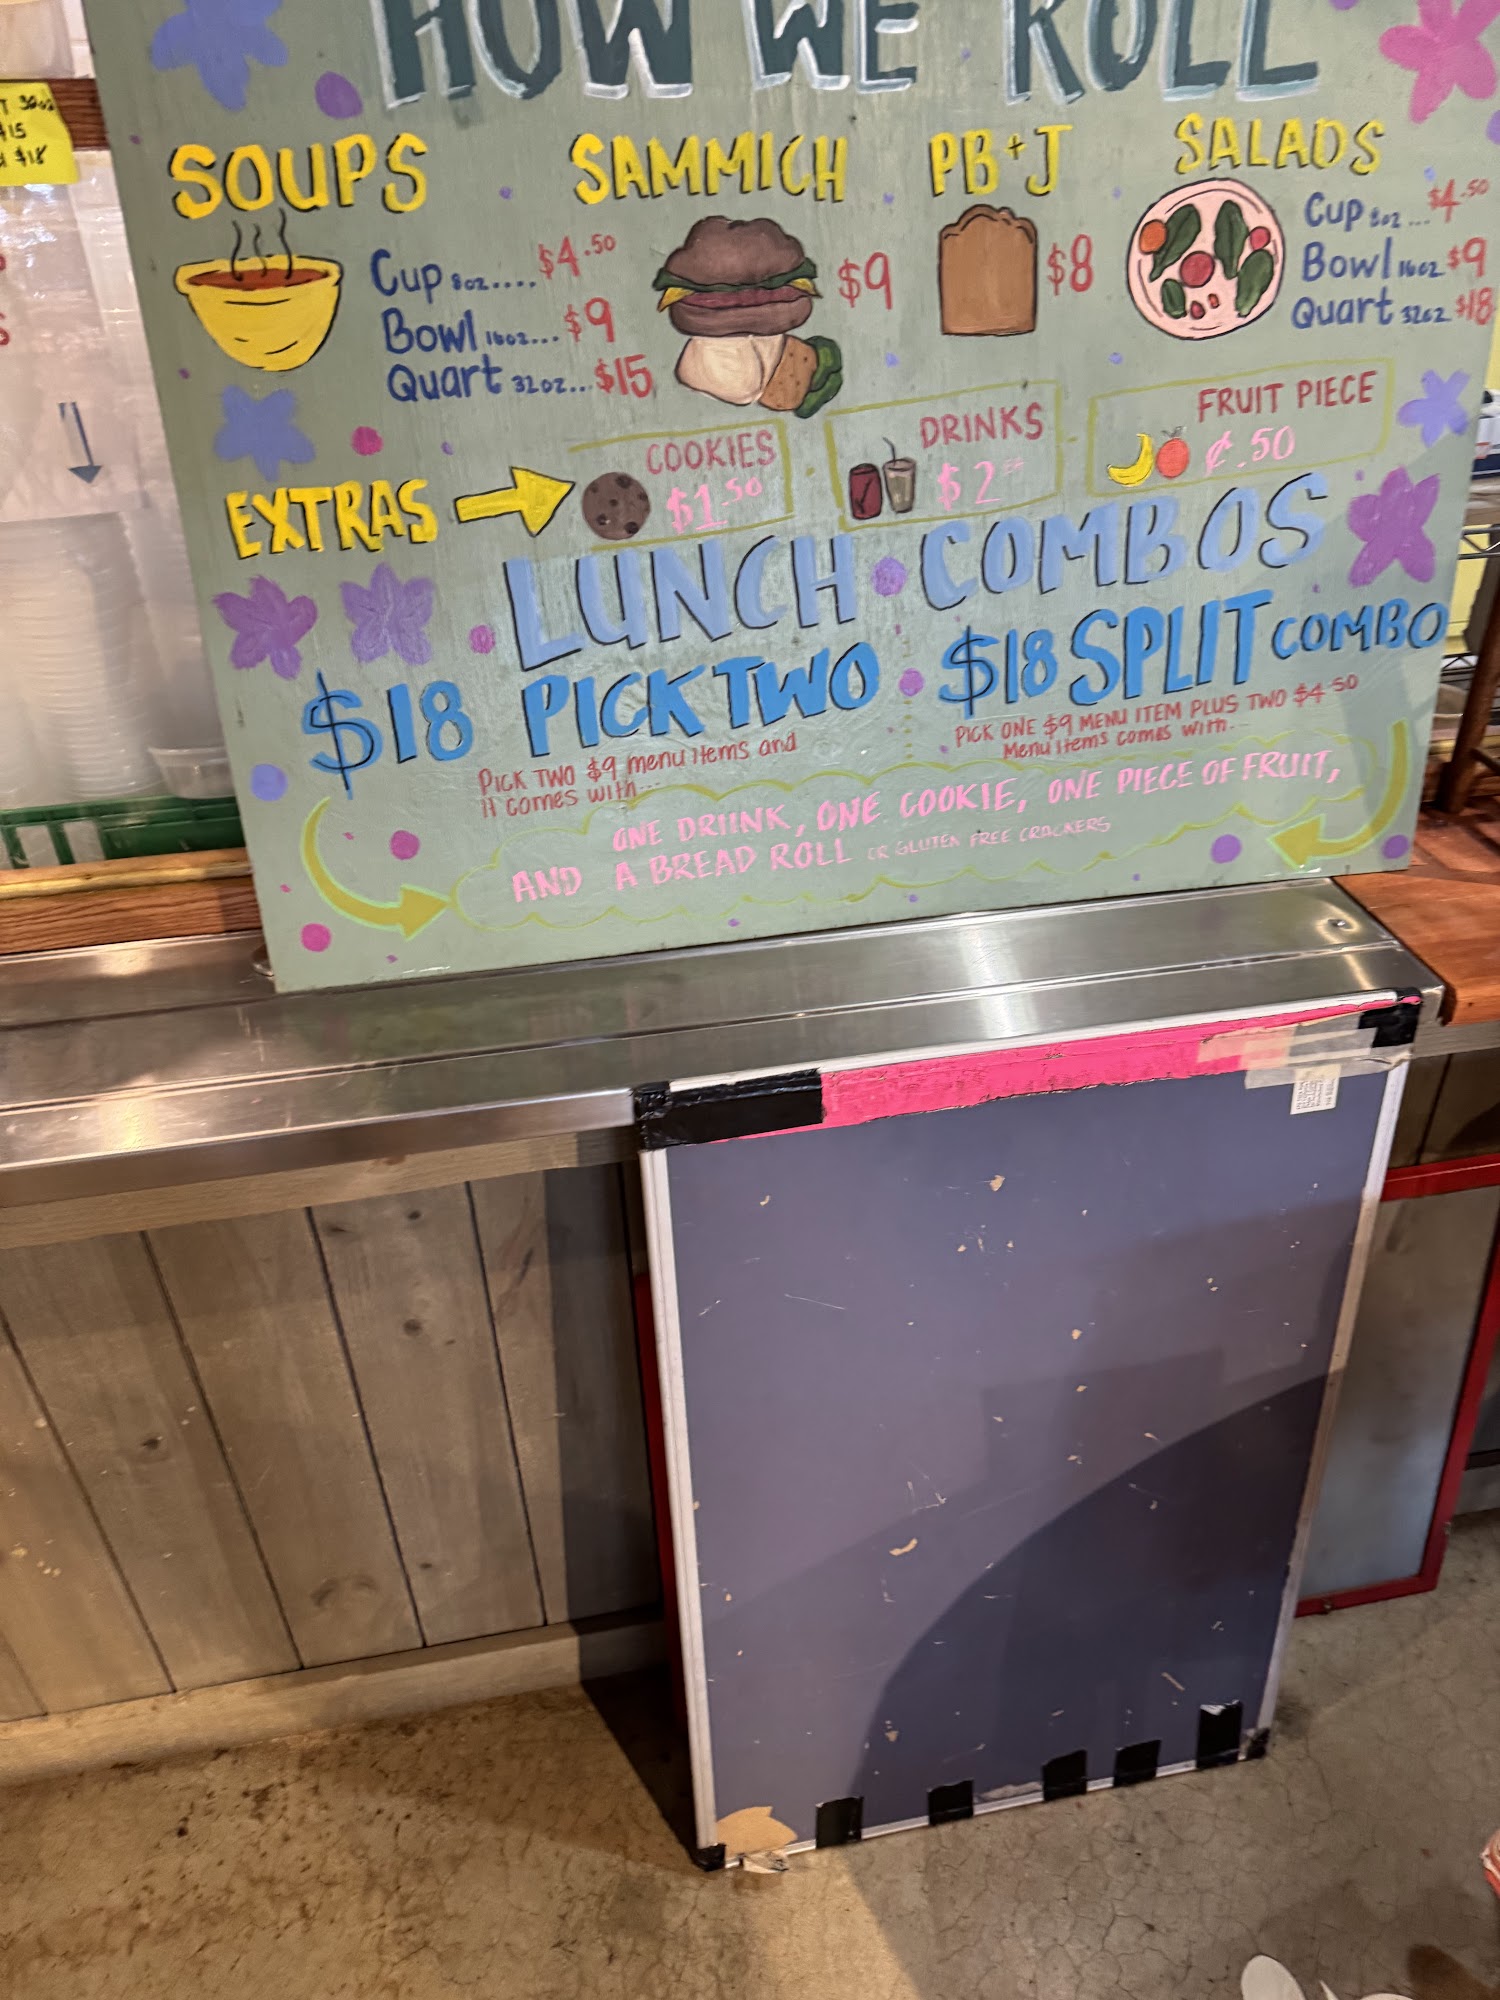 HOW WE ROLL
SOUPS
Cup 8oz.... $4.50
Bowl 16oz... $9
Quart 32oz... $15
SAMMICH
$9
PB+J
$8
SALADS
Cup 8oz... $4.50
Bowl 16oz $9
Quart 32oz $18
EXTRAS
COOKIES
$1.50
DRINKS
$2
FRUIT PIECE
¢.50
LUNCH COMBOS
$18 PICK TWO
PICK TWO $9 menu items and
it comes with...
$18 SPLIT COMBO
PICK ONE $9 MENU ITEM PLUS TWO $4.50
Menu items comes with...
ONE DRIINK, ONE COOKIE, ONE PIECE OF FRUIT,
AND A BREAD ROLL OR GLUTEN FREE CRACKERS
$15
$18